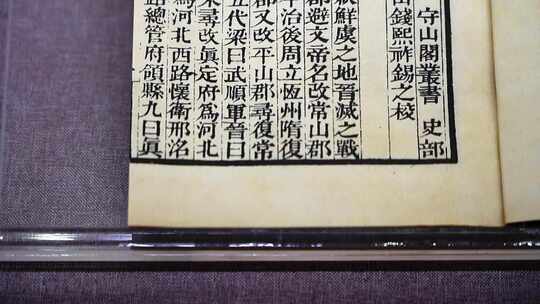 守山閣叢書 史部
錢熙祚錫之校
鮮虞之地晉滅之戰
郡避文帝名改常山郡
平治後周立恆州隋復
郡又改平山郡尋復常
五代梁曰武順軍晉曰
宋尋改眞定府爲河北
爲河北西路懷衛邢名
路總管府領縣九曰眞